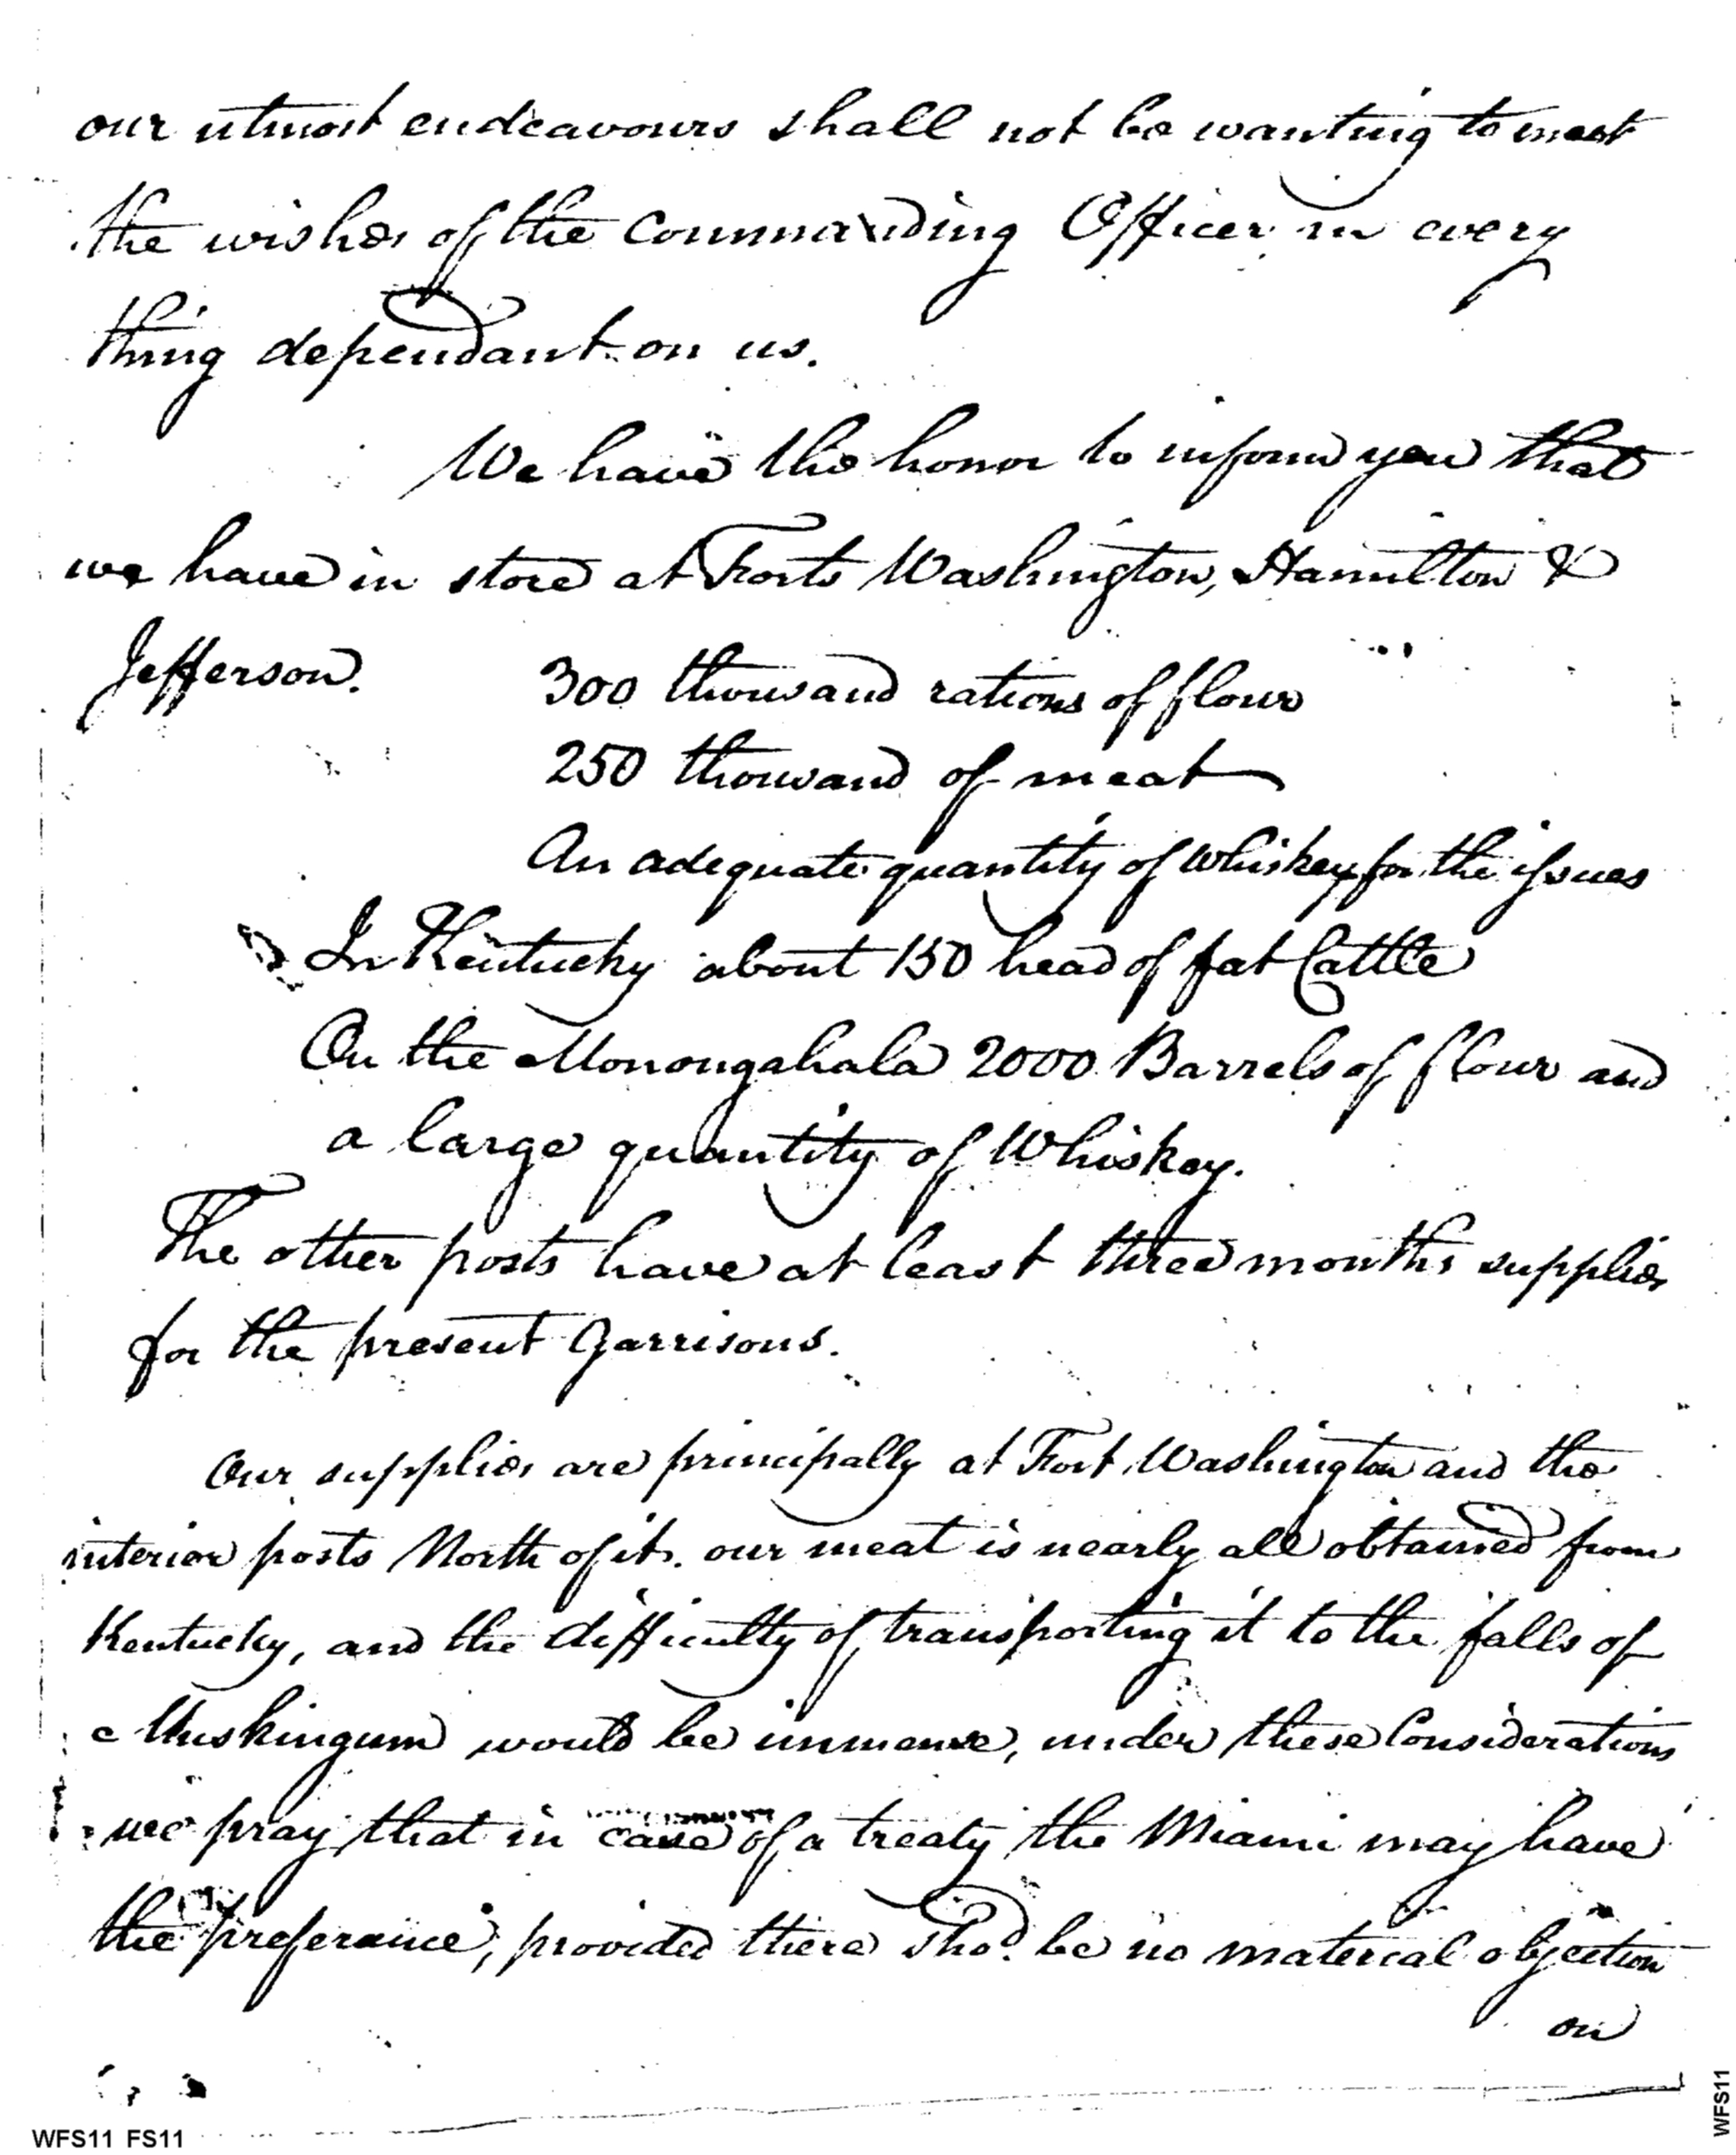 our utmost endeavours shall not be wanting to meet
the wishes of the Commanding Officer in every
thing dependant on us.
We have the honor to inform you that
we have in store at Forts Washington, Hamilton &
Jefferson. 300 thousand rations of flour
250 thousand of meat
An adequate quantity of Whiskey for the issues
In Kentucky about 150 head of fat Cattle
On the Monongahala 2000 Barrels of flour and
a large quantity of Whiskey.
The other posts have at least three months supplies
for the present Garrisons.
Our supplies are principally at Fort Washington and the
interior posts North of it. our meat is nearly all obtained from
Kentucky, and the difficulty of transporting it to the falls of
Muskingum would be immense, under these Considerations
we pray that in case of a treaty the Miami may have
the preferance, provided there shod. be no material objection
on
WFS11 FS11
WFS11